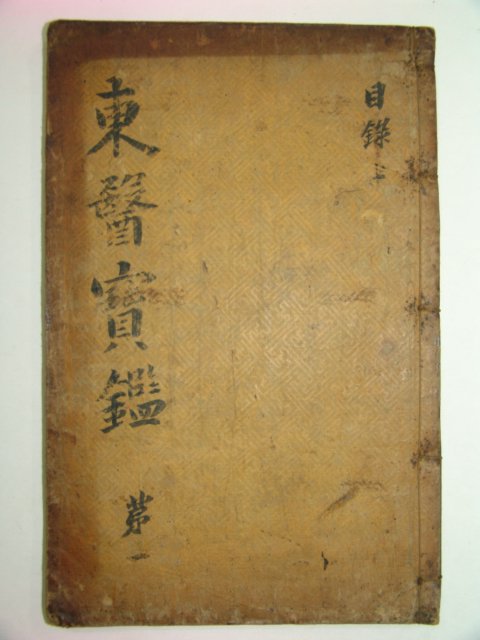 目錄上
東醫寶鑑
第一